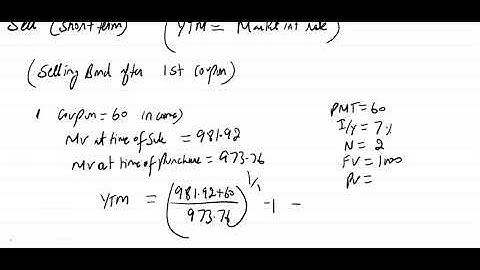 Sell (Short term) (YTM = Market int rate)
(Selling Bond after 1st coupon)
1 Coupon = 60 income)
MV at time of Sale = 981.92
MV at time of Purchase = 973.76
YTM = (981.92+60 / 973.76)^1/1 -1 =
PMT = 60
I/y = 7%
N = 2
FV = 1000
PV =